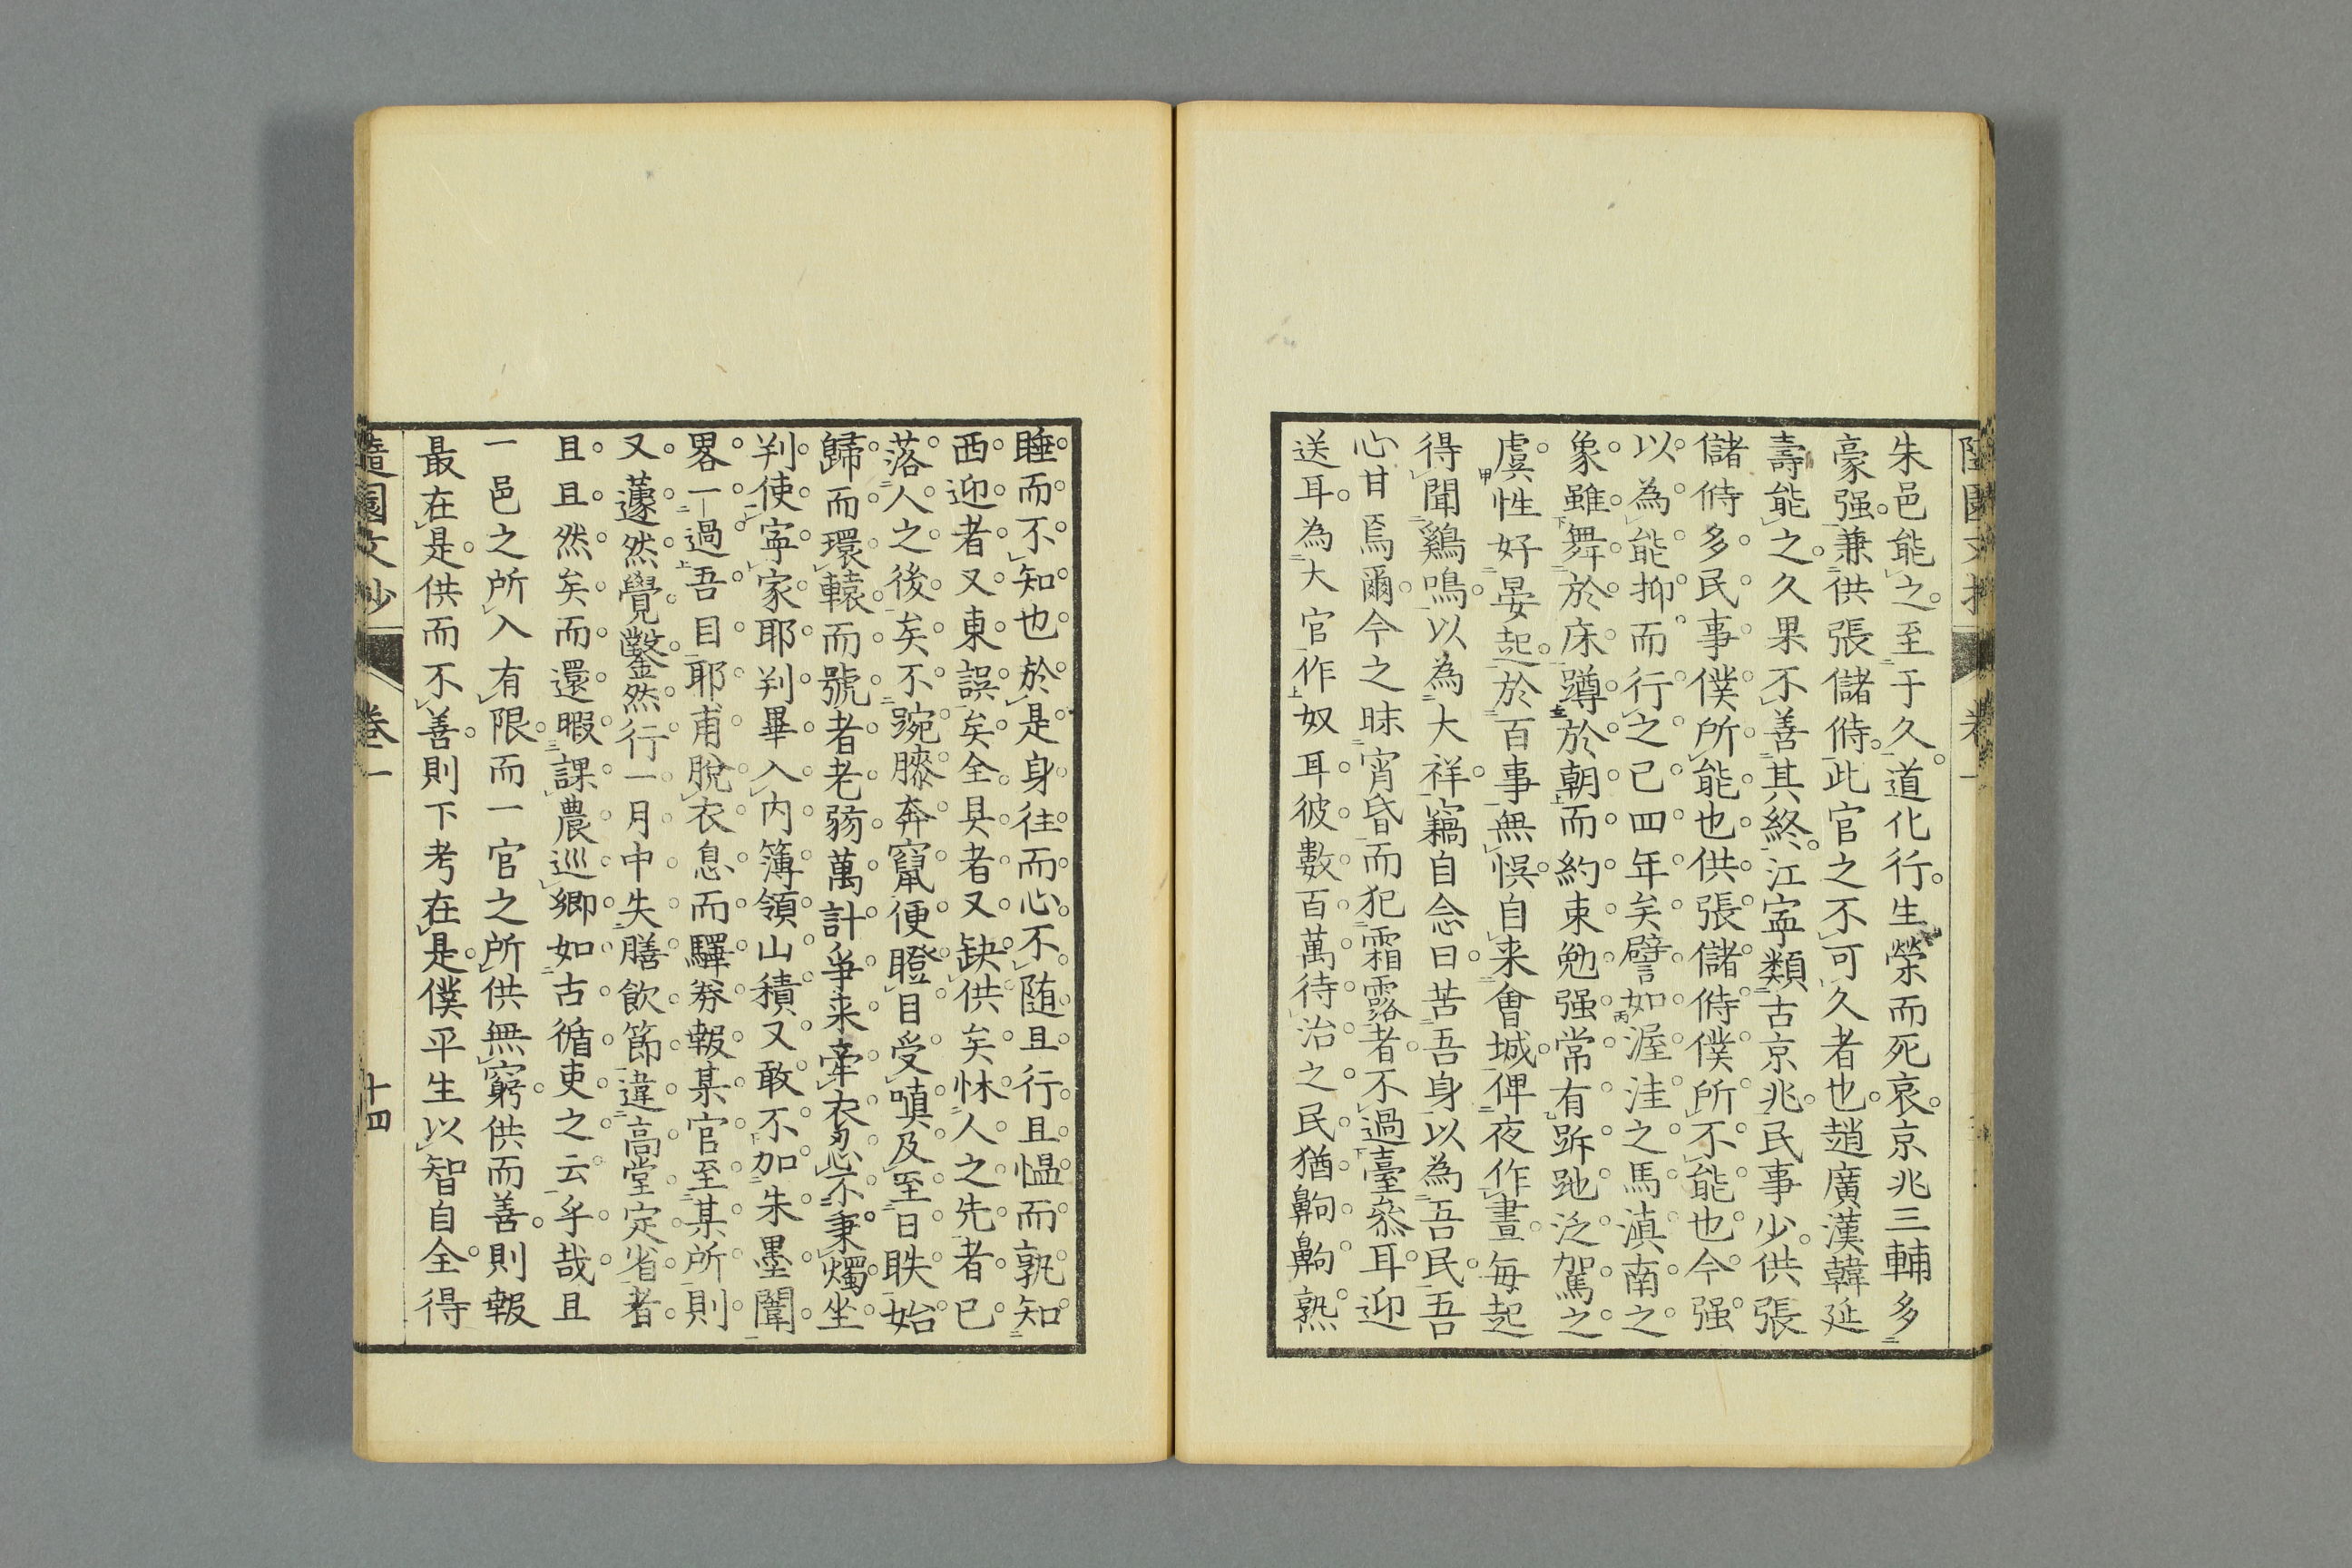 朱邑能之至于久道化行生榮而死哀京兆三輔多
豪强兼供張儲偫此官之不可久者也趙廣漢韓延
壽能之久果不善其終江寍類古京兆民事少供張
儲偫多民事僕所能也供張儲偫僕所不能也今强
以為能抑而行之已四年矣譬如渥洼之馬滇南之
象雖舞於床蹲於朝而約束勉强常有跅跎泛駕之
虞性好晏起於百事無悞自来會城俾夜作晝每起
得聞鷄鳴以為大祥竊自念曰苦吾身以為吾民吾
心甘焉爾今之昧宵昏而犯霜露者不過臺叅耳迎
送耳為大官作奴耳彼數百萬待治之民猶齁齁熟
睡而不知也於是身往而心不随且行且愠而孰知
西迎者又東誤矣全具者又缺供矣怵人之先者已
落人之後矣不踠膝奔竄便瞪目受嗔及至日昳始
歸而環轅而號者老弱萬計爭来牽衣忍不秉燭坐
判使寍家耶判畢入内簿領山積又敢不加朱墨闈
畧一一過吾目耶甫脫衣息而驛劵報某官至某所則
又蘧然覺鑿然行一月中失膳飲節違高堂定省者
且且然矣而還暇課農巡鄉如古循吏之云乎哉且
一邑之所入有限而一官之所供無窮供而善則報
最在是供而不善則下考在是僕平生以智自全得
遺園文抄 卷一 十四